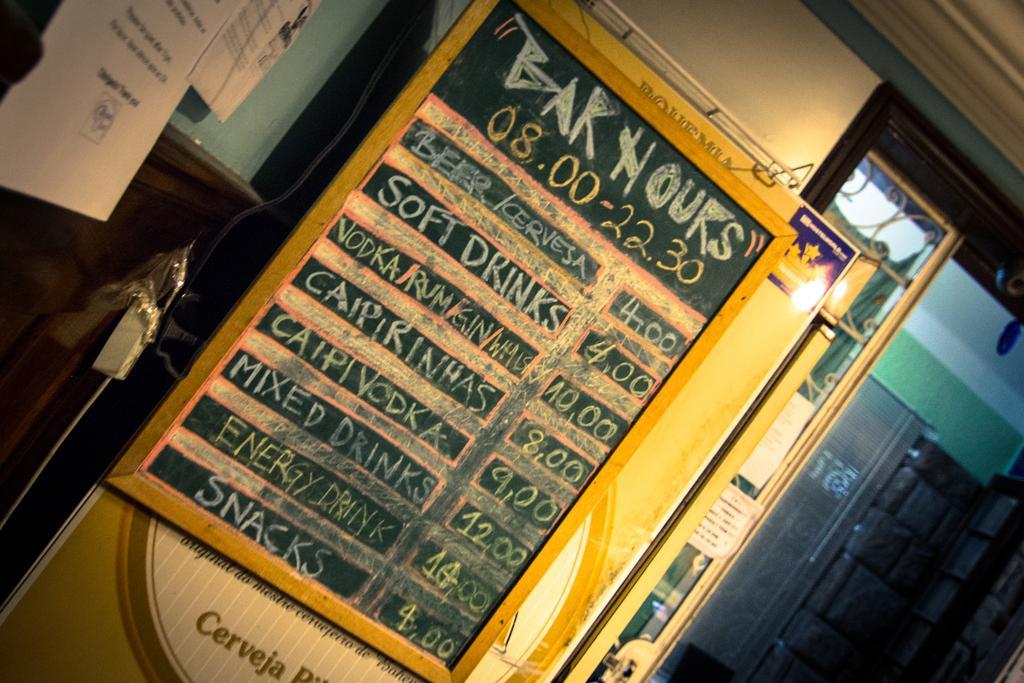 BOHEMIA
"BAR HOURS"
08.00-22.30
BEER/CERVESA 4,00
SOFT DRINKS 4,00
VODKA/RUM/GIN/ 10,00
CAIPIRINHAS 8,00
CAIPIVODKA 9,00
MIXED DRINKS 12,00
ENERGY DRINK 14,00
SNACKS 4,00
original do mestre cervejeiro de
Cerveja